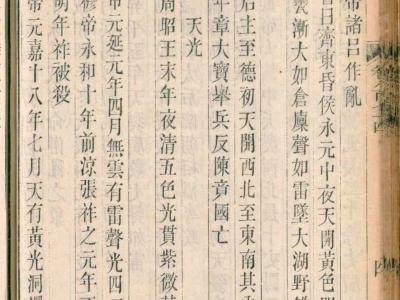 帝諸呂作亂
日齊東昏侯永元中夜天開黃色
甕漸大如倉廩聲如雷墜大湖野
后主至德初天開西北至東南其
年章大寶舉兵反陳竟國亡
天光
周昭王末年夜清五色光貫紫微其
帝元延元年四月無雲有雷聲光四
穆帝永和十年前涼張祚之元年
明年祚被殺
帝元嘉十八年七月天有黃光洞